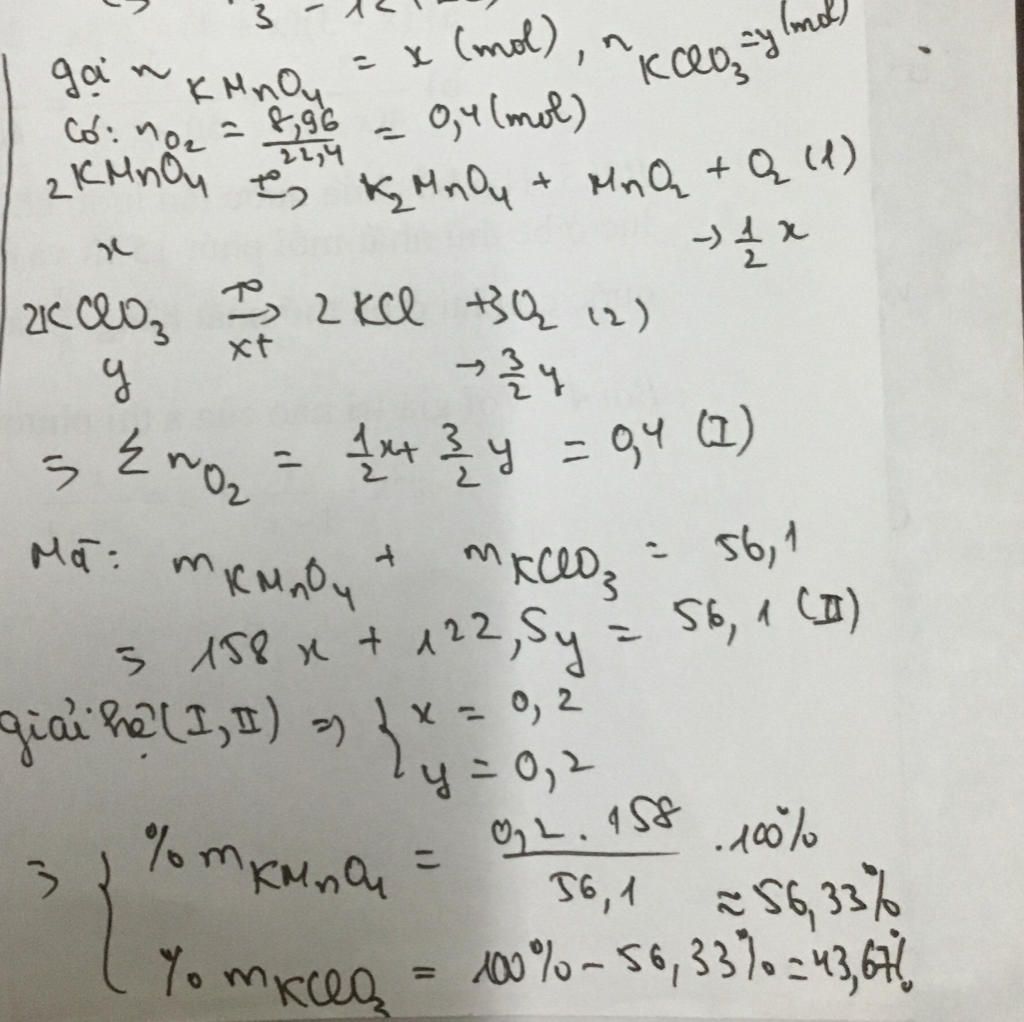 gọi n KMnO₄ = x (mol), n KClO₃ = y (mol)
Có: nO₂ = 8,96/22,4 = 0,4 (mol)
2KMnO₄ t°→ K₂MnO₄ + MnO₂ + O₂ (1)
x → 1/2 x
2KClO₃ t°→ xt 2KCl + 3O₂ (2)
y → 3/2 y
⇒ Σ nO₂ = 1/2 x + 3/2 y = 0,4 (I)
Mà: m KMnO₄ + m KClO₃ = 56,1
⇒ 158x + 122,5y = 56,1 (II)
giải hệ (I, II) ⇒ { x = 0,2
y = 0,2
⇒ { % m KMnO₄ = 0,2 . 158 / 56,1 . 100%
≈ 56,33%
% m KClO₃ = 100% - 56,33% = 43,67%